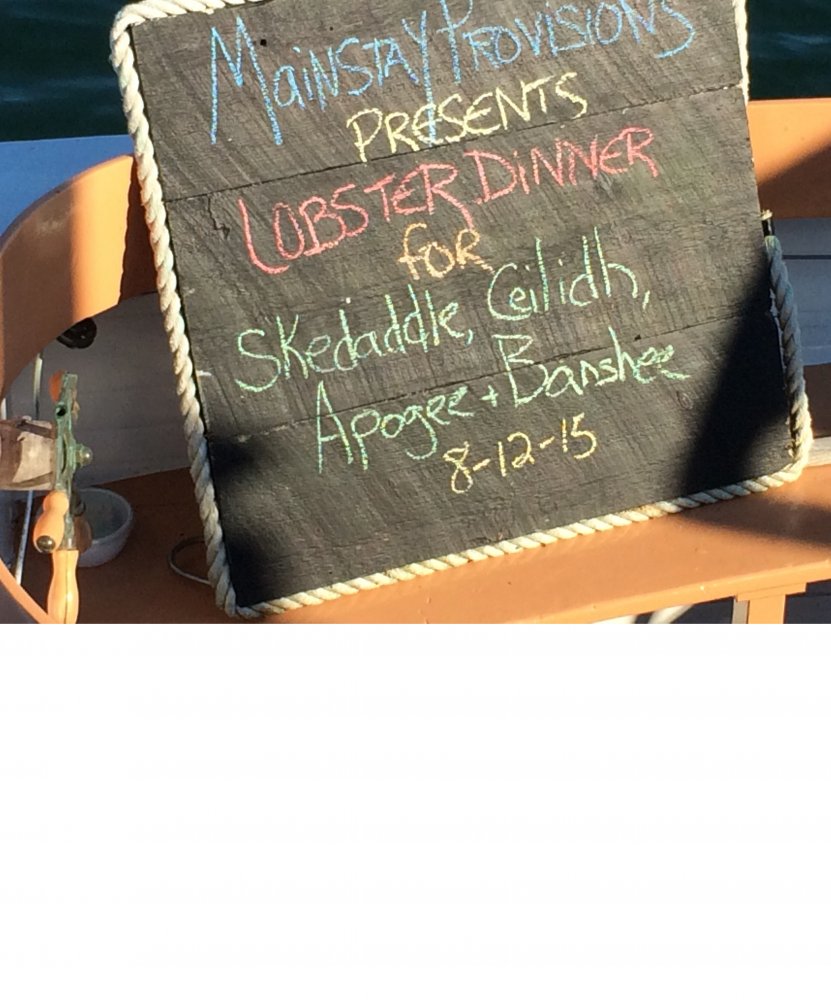 MaiNSTAY PROViSiONS
PRESENTS
LOBSTER DiNNER
foR
Skedaddle, Ceilidh,
Apogee + Banshee
8-12-15